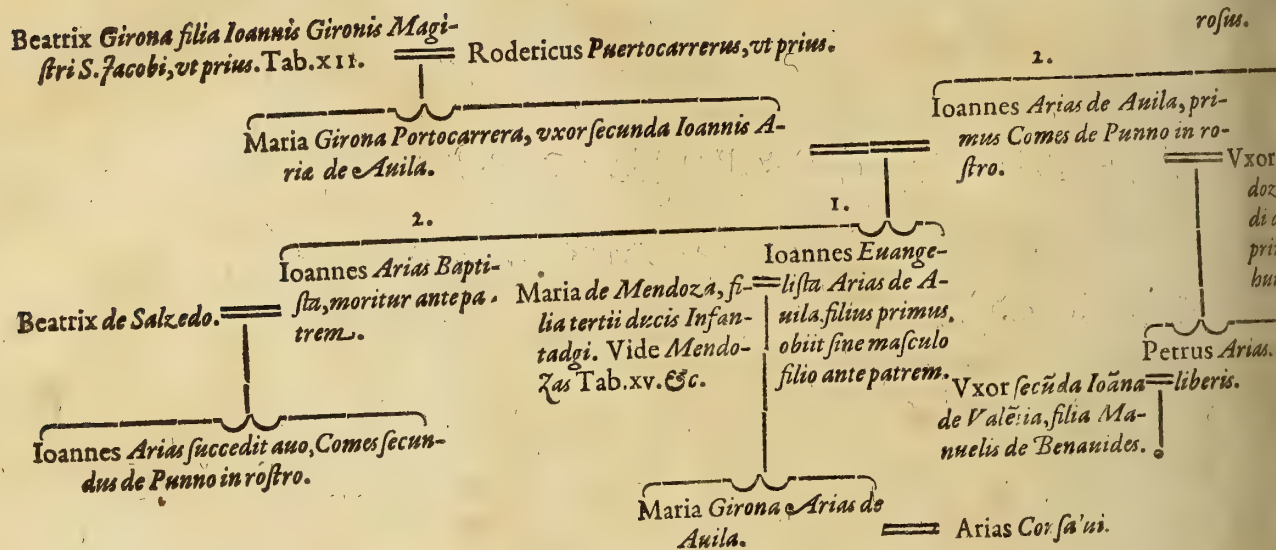 Beatrix Girona filia Ioannis Gironis Magi-
ſtri S. Jacobi, vt prius. Tab. XII.
Rodericus Puertocarrerus, vt prius.
roſus.
2.
Maria Girona Portocarrera, vxor ſecunda Ioannis A-
riæ de Auila.
Ioannes Arias de Auila, pri-
mus Comes de Punno in ro-
ſtro.
Vxor
doz
di
pri
hu
2.
1.
Beatrix de Salzedo.
Ioannes Arias Bapti-
ſta, moritur ante pa-
trem.
Maria de Mendoza, fi-
lia tertii ducis Infan-
tadgi. Vide Mendo-
zas Tab. xv. &c.
Ioannes Euange-
liſta Arias de A-
uila, filius primus,
obiit ſine maſculo
filio ante patrem.
Petrus Arias.
liberis.
Vxor ſecūda Ioāna
de Valēcia, filia Ma-
nuelis de Benauides.
Ioannes Arias ſuccedit auo, Comes ſecun-
dus de Punno in roſtro.
Maria Girona Arias de
Auila.
Arias